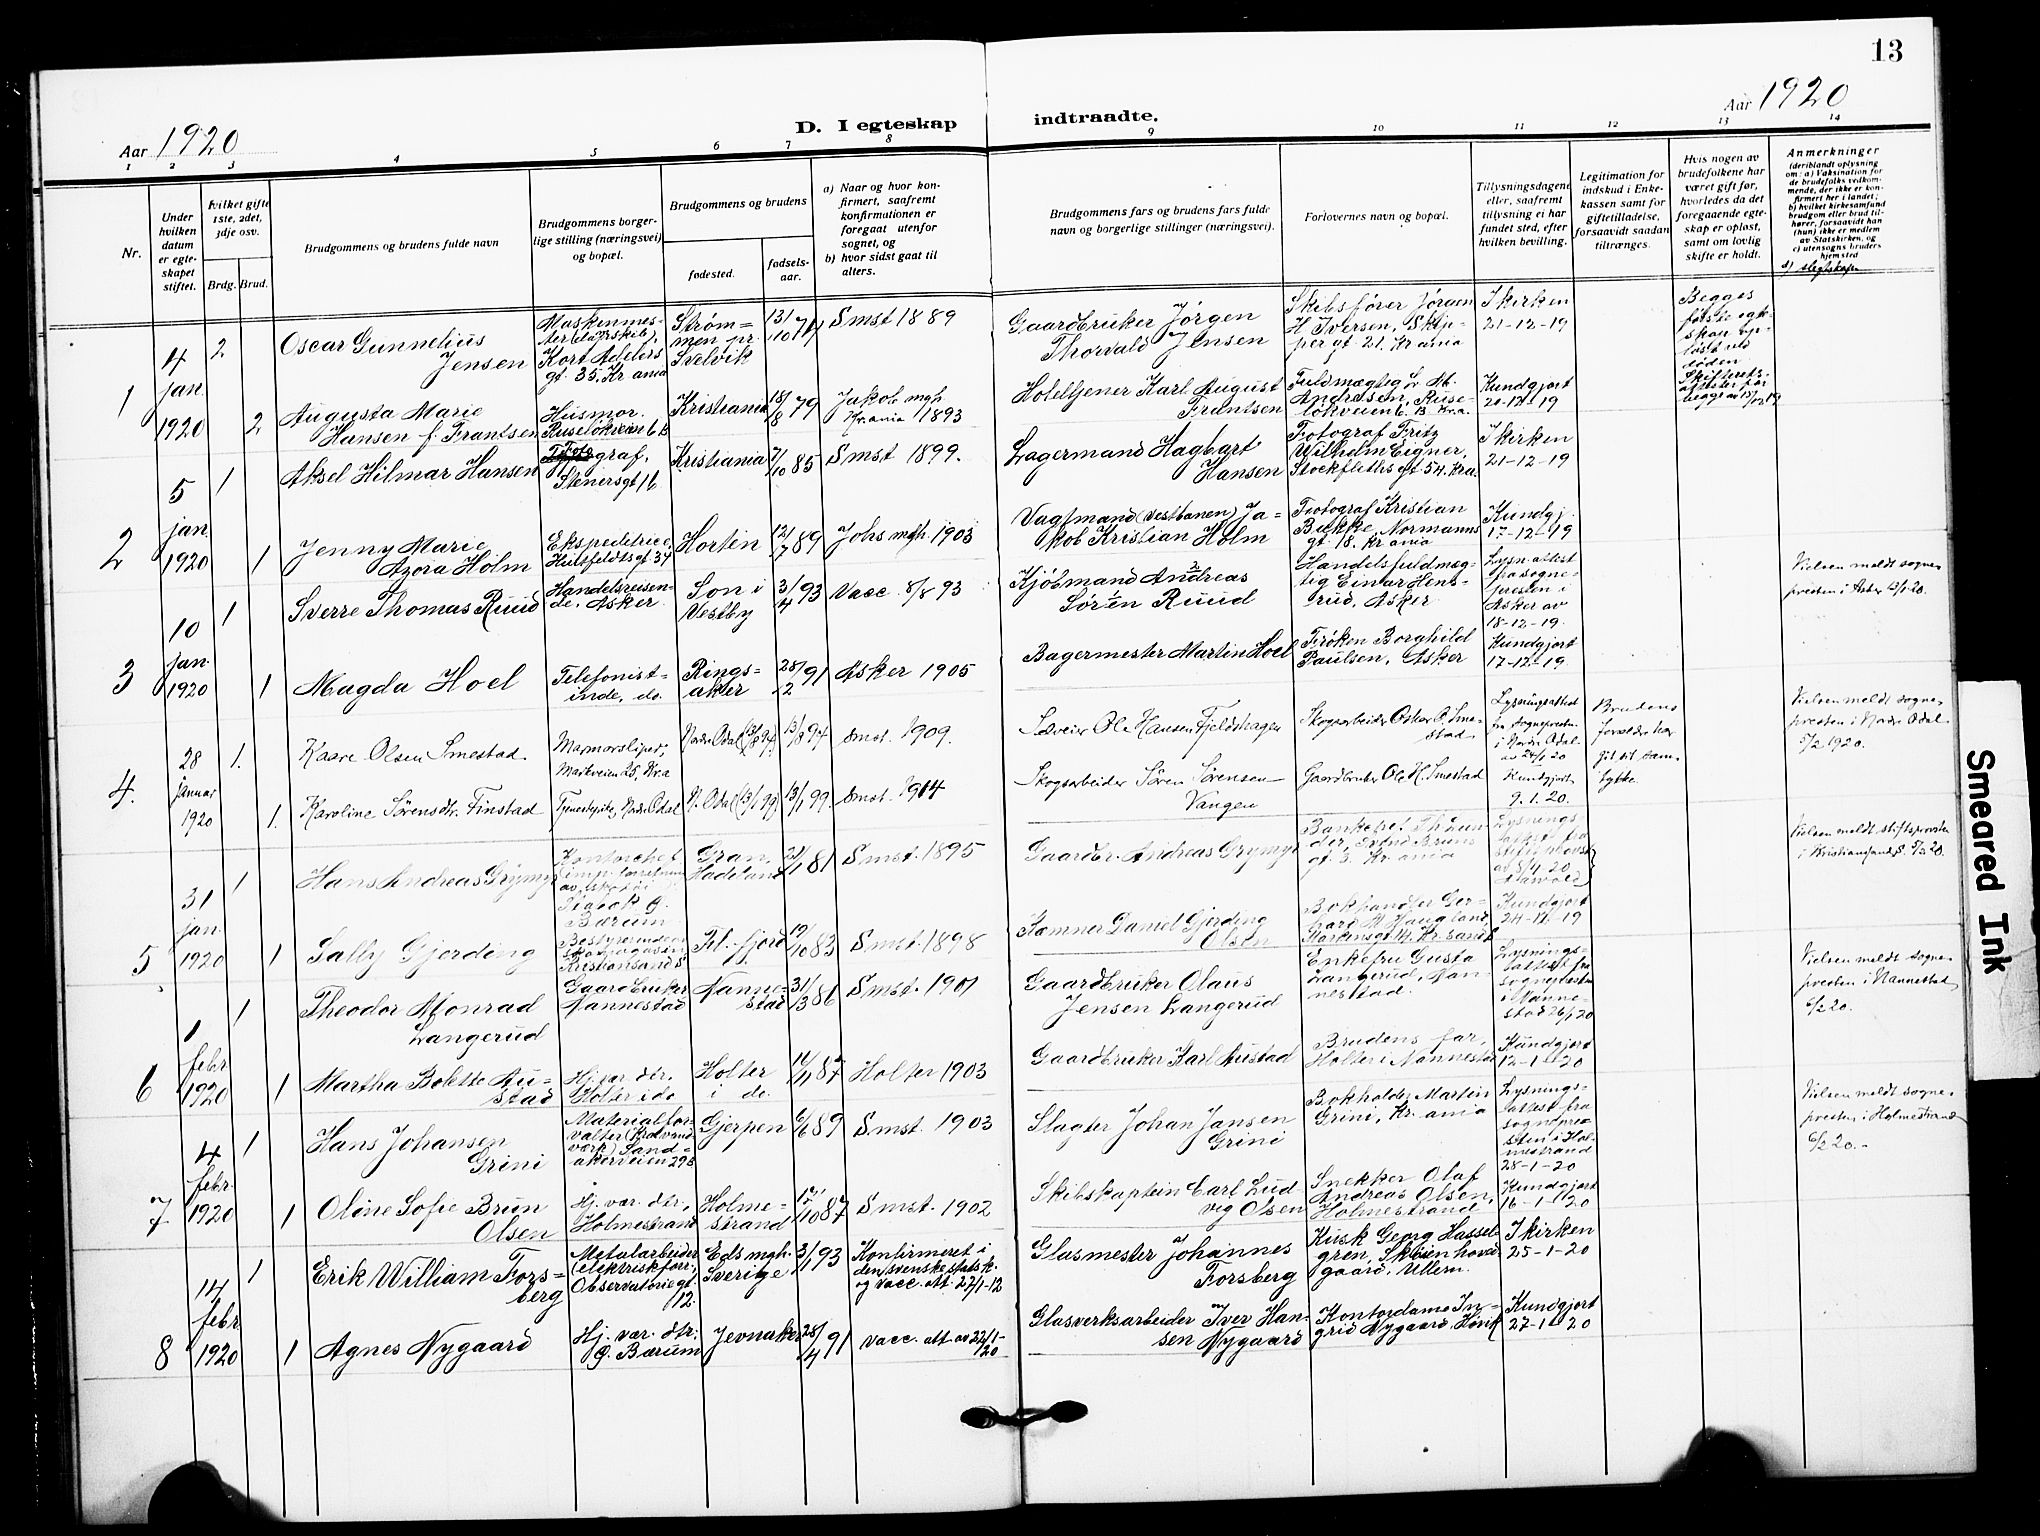 13
Aar 1920
D. I egteskap
indtraadte.
Aar 1920
1 2 3 4 5 6 7 8
9 10 11 12 13 14
Nr.
Under
hvilken
datum
er egte-
skapet
stiftet.
hvilket gifte
1ste, 2det,
3dje osv.
Brdg.
Brud.
Brudgommens og brudens fulde navn
Brudgommens borger-
lige stilling (næringsvei)
og bopæl.
Brudgommens og brudens
fødested.
fødsels-
aar.
a) Naar og hvor kon-
firmert, saafremt
konfirmationen er
foregaat utenfor
sognet, og
b) hvor sidst gaat til
alters.
Brudgommens fars og brudens fars fulde
navn og borgerlige stillinger (næringsvei).
Forlovernes navn og bopæl.
Tillysningsdagene
eller, saafremt
tillysning ei har
fundet sted, efter
hvilken bevilling.
Legitimation for
indskud i Enke-
kassen samt for
giftetilladelse,
forsaavidt saadan
tiltrænges.
Hvis nogen av
brudefolkene har
været gift før,
hvorledes da det
foregaaende egte-
skap er opløst,
samt om lovlig
skifte er holdt.
Anmerkninger
(deriblandt oplysning
om: a) Vaksination for
de brudefolks vedkom-
mende, der ikke er kon-
firmert her i landet;
b) hvilket kirkesamfund
brudgom eller brud til-
hører, forsaavidt han
(hun) ikke er medlem
av Statskirken, og
c) utensogns bruders
hjemsted
d) slegtskapen
1
4
jan.
1920
2
Oscar Gunnelius
Jensen
Maskinmes-
Kort Adelers
gt. 35. Kr.ania
Strøm=
men pr.
Svelvik
13/10 71
Smst 1889
Gaardbruker Jørgen
Thorvald Jensen
Skibsfører Jørgen
H Iversen, Skip-
per gt. 21. Kr.ania
I kirken
21-12-19
Begges
første egte-
skap op-
løst ved
døden
2
Augusta Marie
Hansen f. Frantsen
Husmor.
Ruseløkveien 6 B
Kristiania
18/8 79
Jakob mgh.
Kr.ania 1893
Hoteltjener Karl August
Frantsen
Fuldmægtig L. M.
Andresen, Ruse-
løkveien 6. B. Kr.a.
Kundgjort
20-12-19
2
5
jan
1920
1
Aksel Hilmar Hansen
Fotograf,
Stenersgt 16
Kristiania
7/10 85
Smst 1899.
Lagermand Hagbart
Hansen
Fotograf Fritz
Wilhelm Eigner,
Stockfleths gt. 54. Kr.a.
I kirken
21-12-19
1
Jenny Marie
Azora Holm
Ekspeditrice
Huitfeldtsgt 34
Horten
12/7 89
Johs mgh. 1903
Vagtmand (Vestbanen) Ja=
kob Kristian Holm
Fotograf Kristian
Bakke, Normanns
gt. 18. Kr.ania
Kundgj.
17-12-19
3
10
jan.
1920
1
Sverre Thomas Ruud
Handelsreisen-
de, Asker
Son i
Vestby
3/4 93
Vacc. 8/8 93
Kjøbmand Andreas
Søren Ruud
Handelsfuldmæg-
tig Einar Hens-
rud, Asker
Lysn.attest
fra sogne-
presten i
Asker av
18-12-19.
Vielsen meldt sogne-
presten i Asker 13/1-20.
1
Magda Hoel
Telefonist-
inde, do.
Rings-
aker
28/2 91
Asker 1905
Bagermester Martin Hoel
Frøken Borghild
Paulsen, Asker
Kundgjort
17-12-19.
4.
28
januar
1920
1.
Kaare Olsen Smestad.
Marmorsliper,
Markveien 25, Kr.a
Nordre Odal (13/8 94)
13/8 94
Smst. 1909.
Ole Hansen Fjeldshagen
Skogsarbeider Oskar O. Sme-
stad
Lysningsattest
fra sognepresten
i Nordre Odal
av 24/1 20
Brudens
forældre har
git sit sam-
tykke.
Vielsen meldt sogne-
presten i Nordre Odal
5/2 1920.
1.
Karoline Sørensdtr. Finstad
Tjenestepike, Nordre Odal
N. Odal (13/1 99)
13/1 99.
Smst. 1914
Skogsarbeider Søren Sørensen
Vangen
Gaardbruker Ole H. Smestad
Kundgjort
9.1.20.
5
31
jan.
1920
1
Hans Andreas Grymyr
Kontorchef
Bærum
Gran,
Hadeland
21/1 81
Smst. 1895
Gaardbr. Andreas Grymyr
gt. 3. Kr.ania
Lysnings
attest fra
stiftsprovst
av 8/1 20
Vielsen meldt stiftsprovsten
i Kristiansand S. 5/2 20.
1
Sally Gjerding
Bestyrerinde
Kristiansand S
Fl.-fjord
19/10 83
Smst. 1898
Kæmner Daniel Gjerding
Olsen
Bokhandler Ger-
hard H. Haugland,
Markensgt 14. Kr.sand S
Kundgjort
24-12-19
6
1
febr.
1920
1
Theodor Monrad
Langerud
Gaardbruker
Nannestad
Nanne-
stad
31/13 86
Smst. 1901
Gaardbruker Olaus
Jensen Langerud
Enkefru Gusta
Langerud, Nan-
nestad.
Lysnings=
attest fra
sognepresten
i Nanne-
stad 26/1 20
Vielsen meldt sogne-
presten i Nannestad
6/2 20.
1
Martha Bolette Au-
stad
Hj. vær. dtr.
Holter i do
Holter
i do.
14/11 87
Holter 1903
Gaardbruker Karl Austad
Brudens far,
Holter i Nannestad
Kundgjort
12-1-20
7
4
febr.
1920
1
Hans Johansen
Grini
Materialfor-
valter
akerveien 29 B
Gjerpen
6/6 89
Smst. 1903
Slagter Johan Jansen
Grini
Bokholder Martin
Grini, Kr.ania
Lysnings-
attest fra
sognepre-
sten i Hol-
mestrand
28-1-20
Vielsen meldt sogne-
presten i Holmestrand
6/2 20.-
1
Oline Sofie Brun
Olsen
Hj. vær. dtr,
Holmestrand
Holme-
strand
12/10 87
Smst. 1902
Skibskaptein Carl Lud-
vig Olsen
Snekker Olaf
Andreas Olsen,
Holmestrand
Kundgjort
16-1-20
8
14
febr
1920
1
Erik William Fors=
berg
Metalarbeider
(elektrisk forr.)
Observatorie gt.
12.
Eds mgh.
Sverige
3/1 93
Konfirmeret i
den svenske statsk.
og vacc. att. 27/1-12
Glasmester Johannes
Forsberg
Kusk Georg Hassel-
gren, Skøienhoved
gaard, Ullern.
I kirken
25-1-20
1
Agnes Nygaard
Hj. vær. dtr.
Ø. Bærum
Jevnaker
28/4 91
vacc. att av 22/1-
20
Glasverksarbeider Iver Han-
sen Nygaard
Kontordame In-
grid Nygaard, Høvik
Kundgjort
27-1-20
Smeared Ink